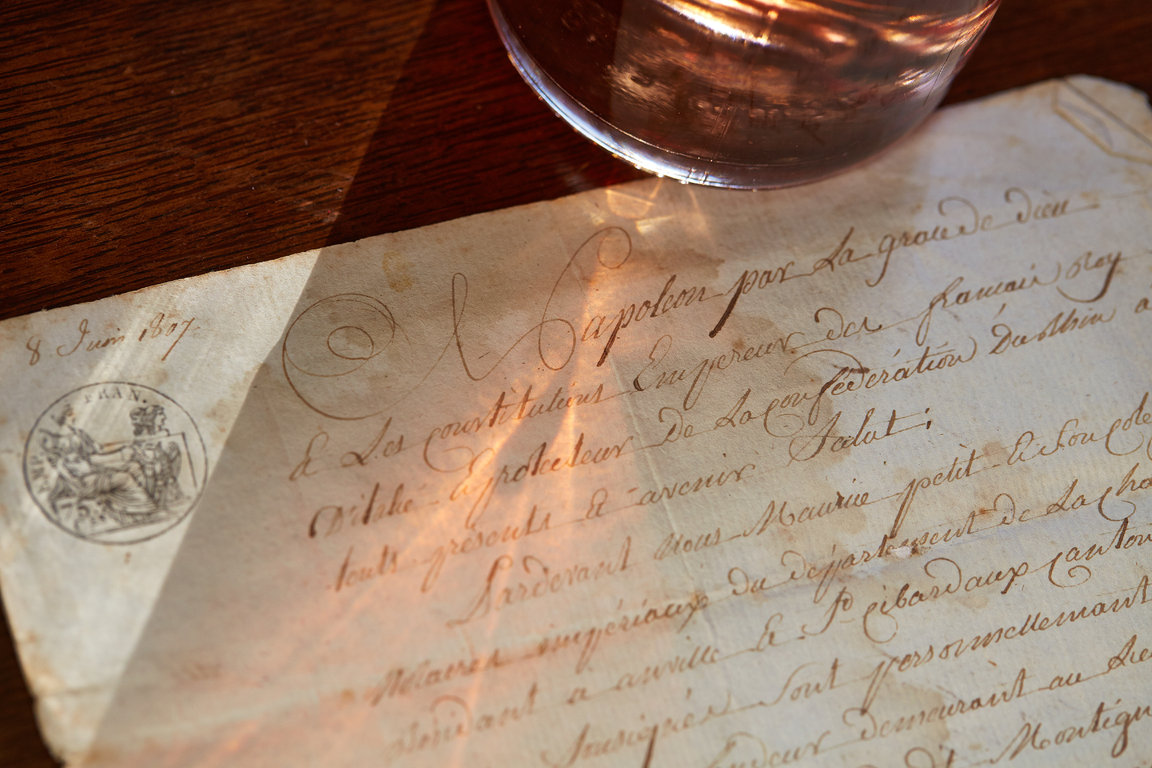 8 Juin 1807
FRAN.
Napoleon par La grace de dieu
& Les constitutions Empereur des francais Roy
D'italie & protecteur de La confédération du Rhin a
touts présents & avenir Salut;
Pardevant nous Maurice petit & Son
Notaires impériaux du département de La cha
Residant a anville & St cibardaux canton
Sousignés Sont personnellement
demeurant au
Montign